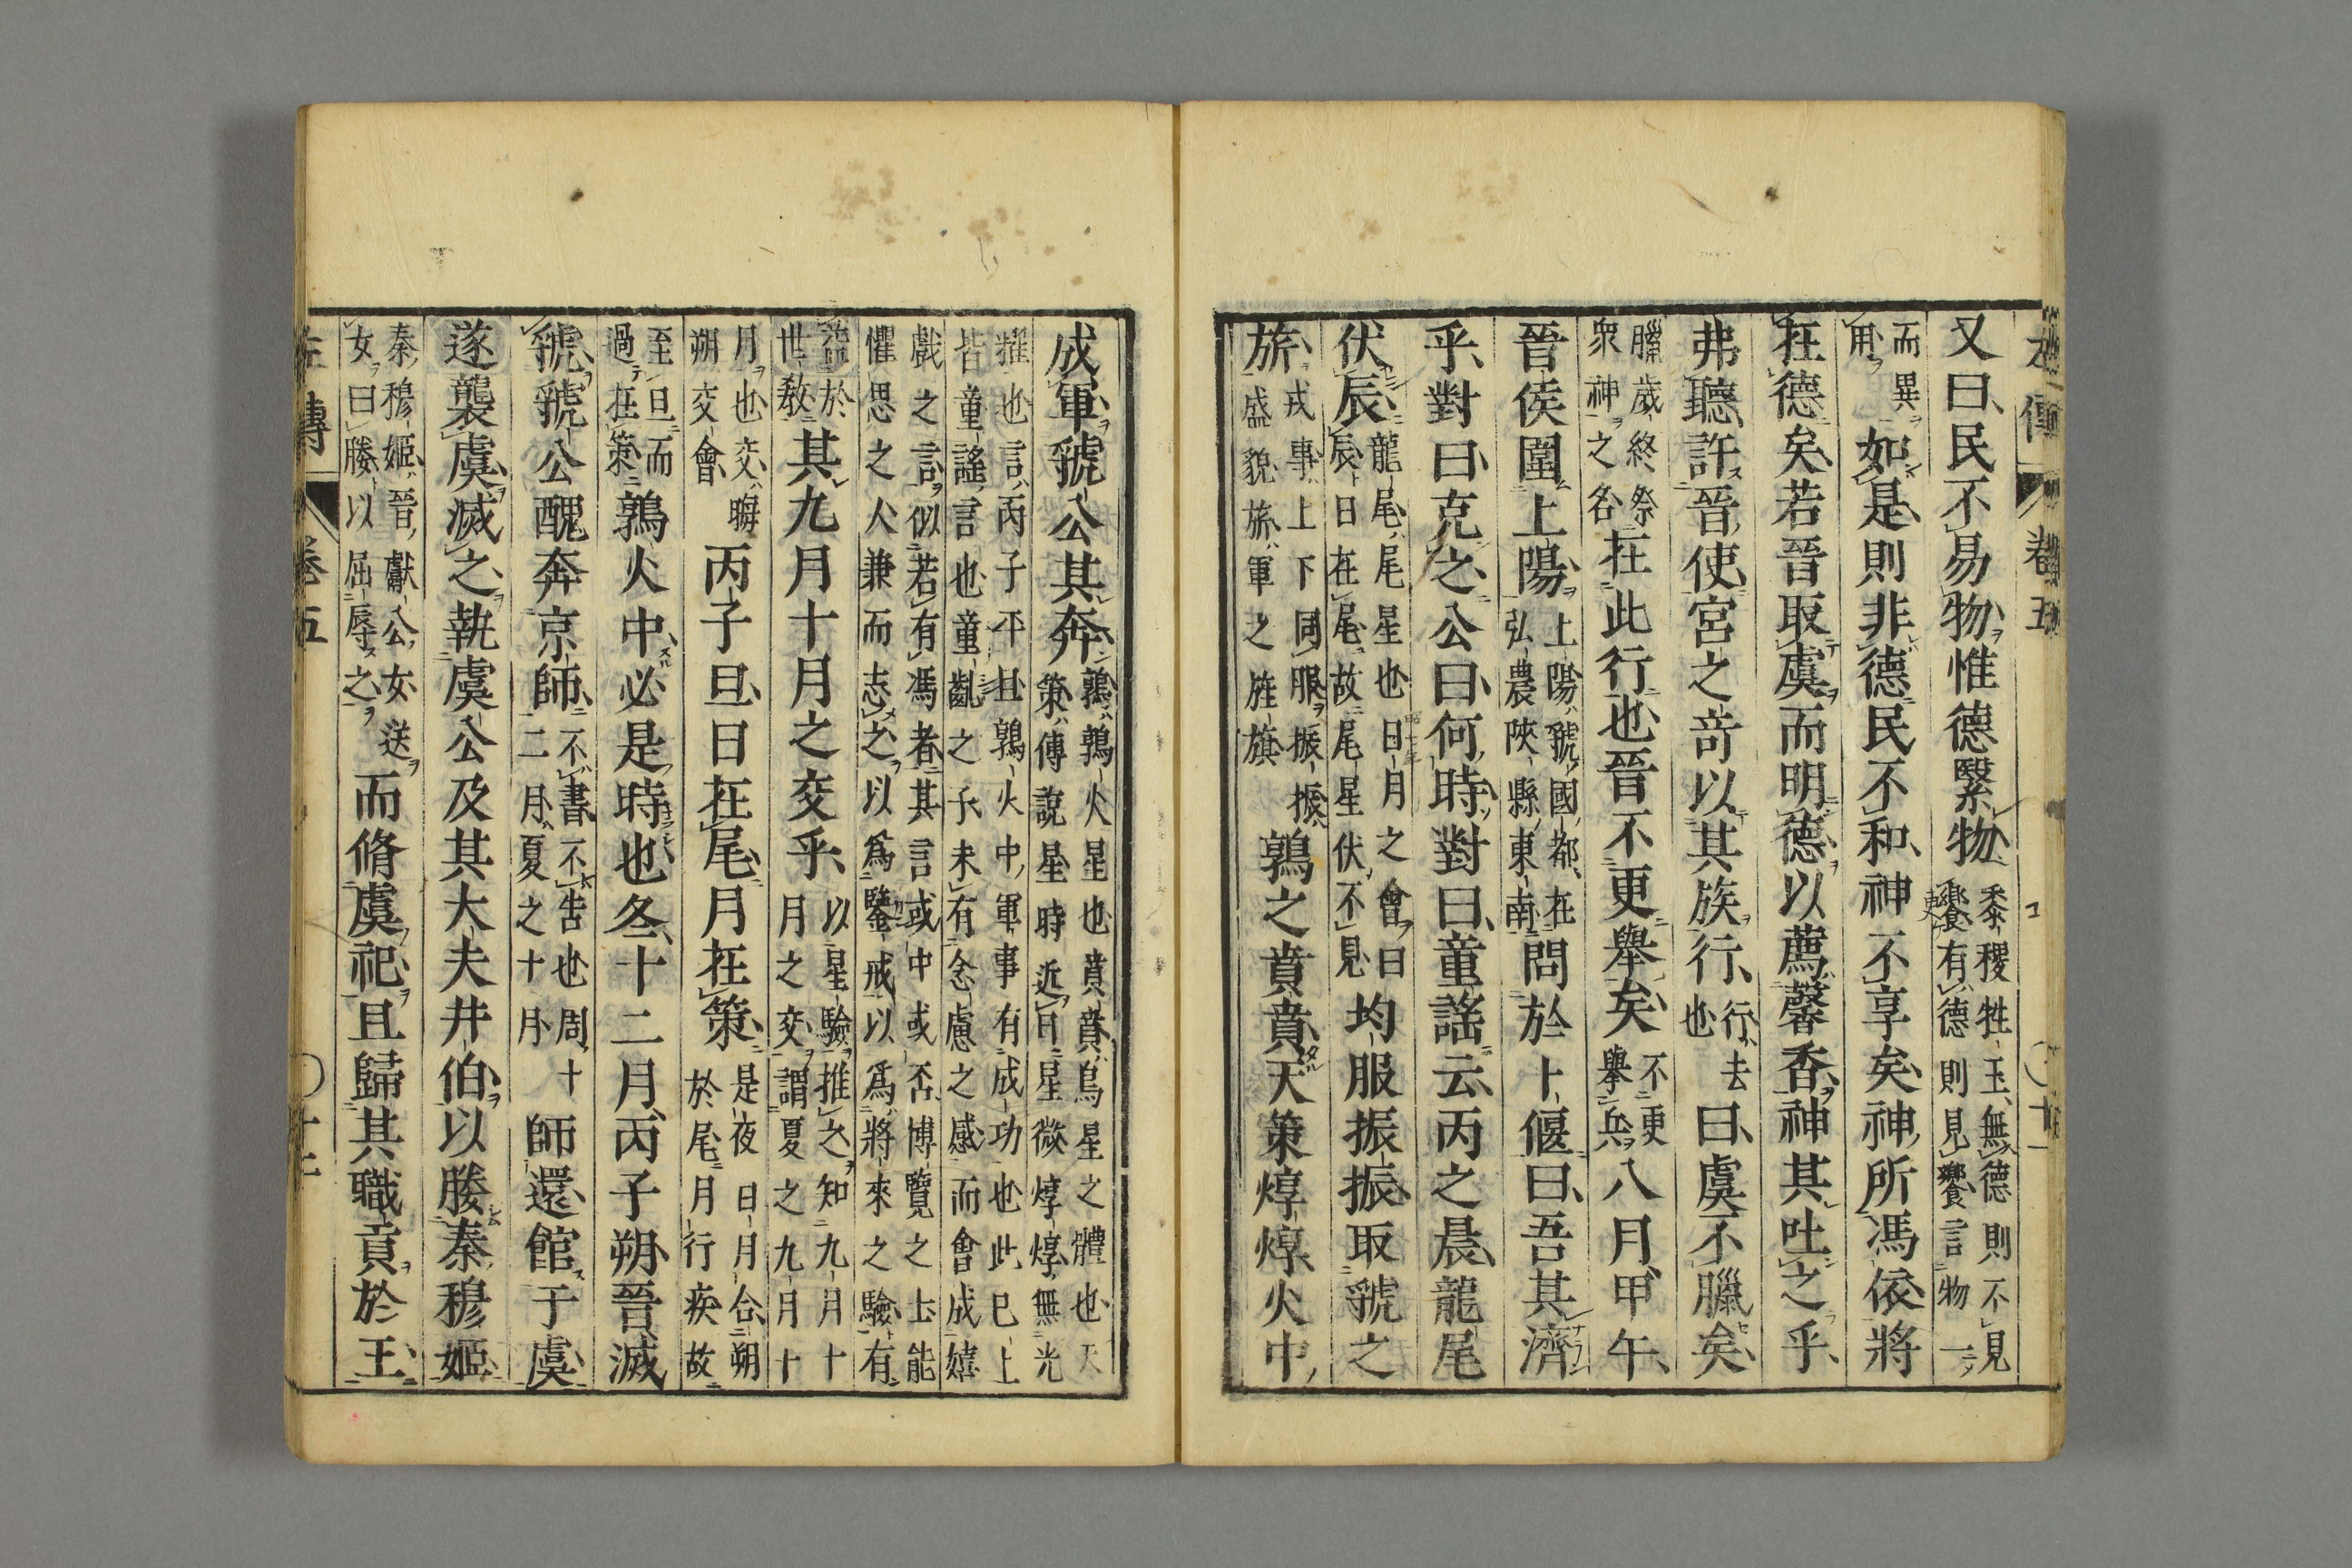 左傳 卷五 十一
又曰民不易物惟德繄物黍稷牲玉無德則不見饗有德則見饗言物一
而異用如是則非德民不和神不享矣神所馮依將
在德矣若晉取虞而明德以薦馨香神其吐之乎
弗聽許晉使宮之奇以其族行行去也曰虞不臘矣
臘歲終祭衆神之名在此行也晉不更舉矣不更舉兵八月甲午
晉侯圍上陽上陽虢國都在弘農陝縣東南問於卜偃曰吾其濟
乎對曰克之公曰何時對曰童謠云丙之晨龍尾
伏辰龍尾尾星也日月之會曰辰日在尾故尾星伏不見均服振振取虢之
旂戎事上下同服振振盛貌旂軍之旌旗鶉之賁賁天策焞焞火中
成軍虢公其奔鶉鶉火星也賁賁鳥星之體也天策傅說星時近日星微焞焞無光
耀也言丙子平旦鶉火中軍事有成功也此已上皆童謠言也童齔之子未有念慮之感而會成嬉
戲之言似若有馮者其言或中或否博覽之士能懼思之人兼而志之以爲鑒戒以爲將來之驗有
於世教其九月十月之交乎以星驗推之知九月十月之交謂夏之九月十
月也交晦朔交會丙子旦日在尾月在策是夜日月合朔於尾月行疾故
至旦而過在策鶉火中必是時也冬十二月丙子朔晉滅
虢虢公醜奔京師不書不告也周十二月夏之十月師還館于虞
遂襲虞滅之執虞公及其大夫井伯以媵秦穆姬
秦穆姬晉獻公女送女曰媵以屈辱之而脩虞祀且歸其職貢於王
左傳 卷五